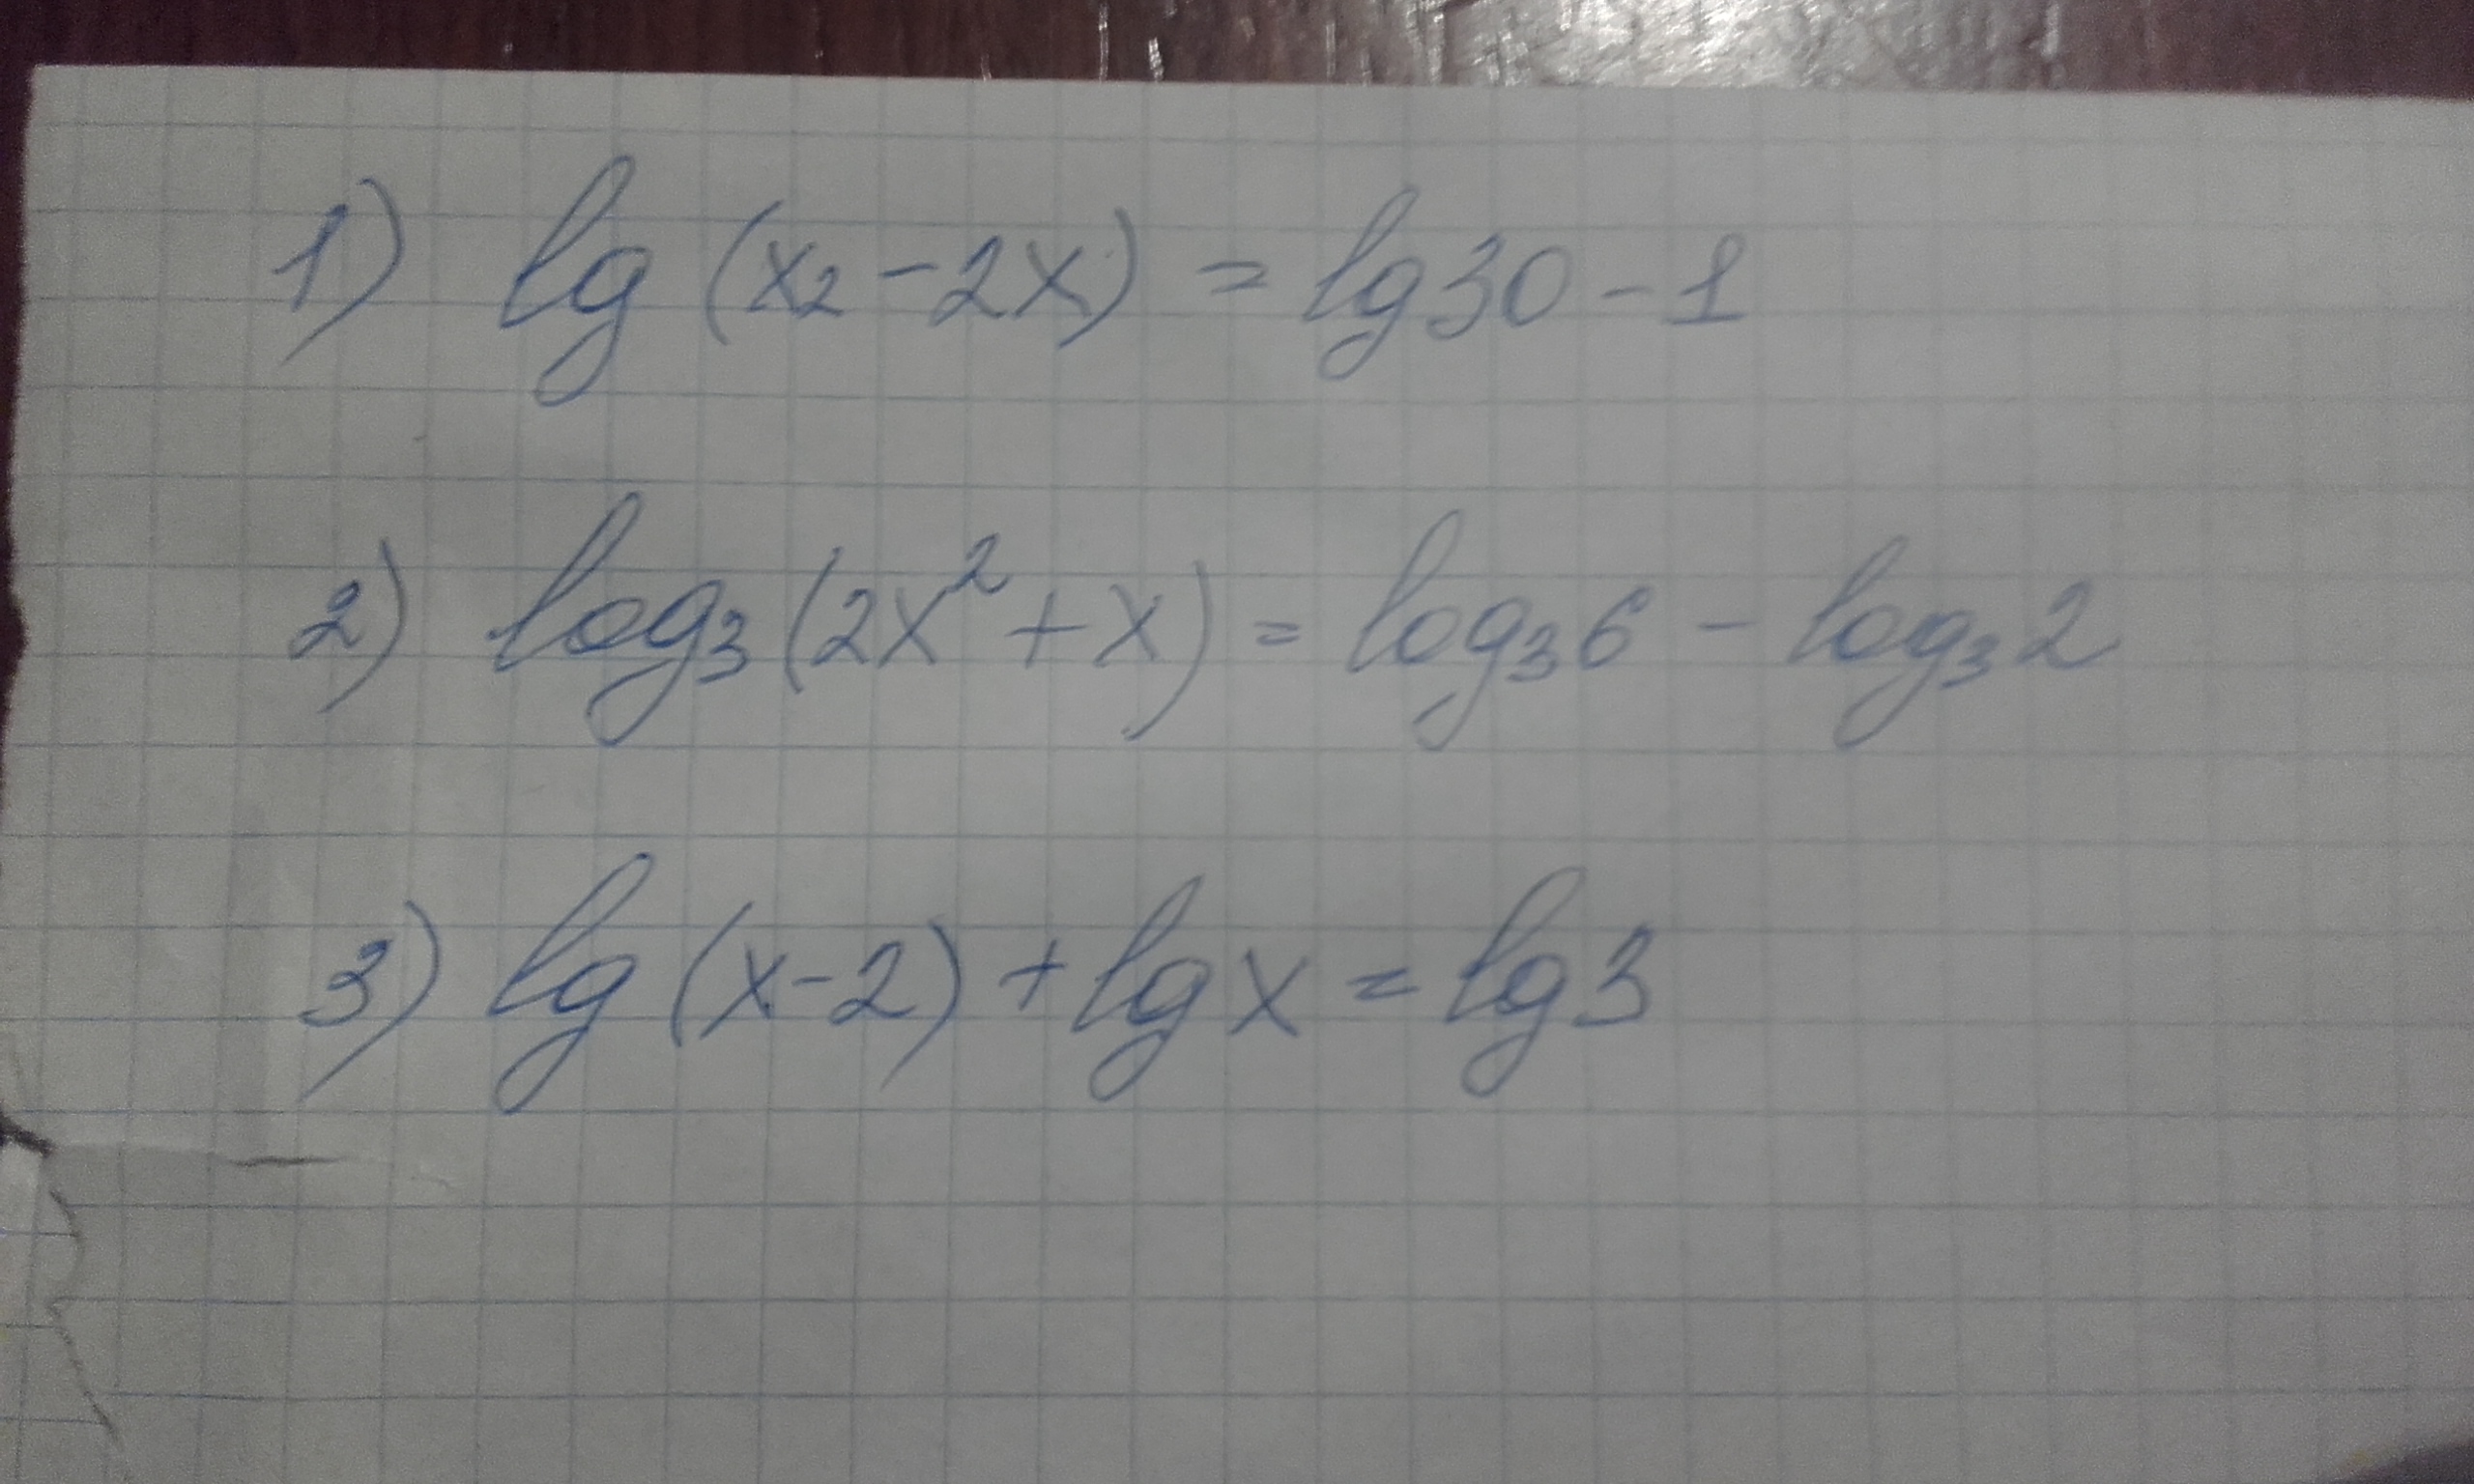 1) lg (x₂ - 2x) = lg 30 - 1
2) log₃ (2x² + x) = log₃ 6 - log₃ 2
3) lg (x - 2) + lg x = lg 3